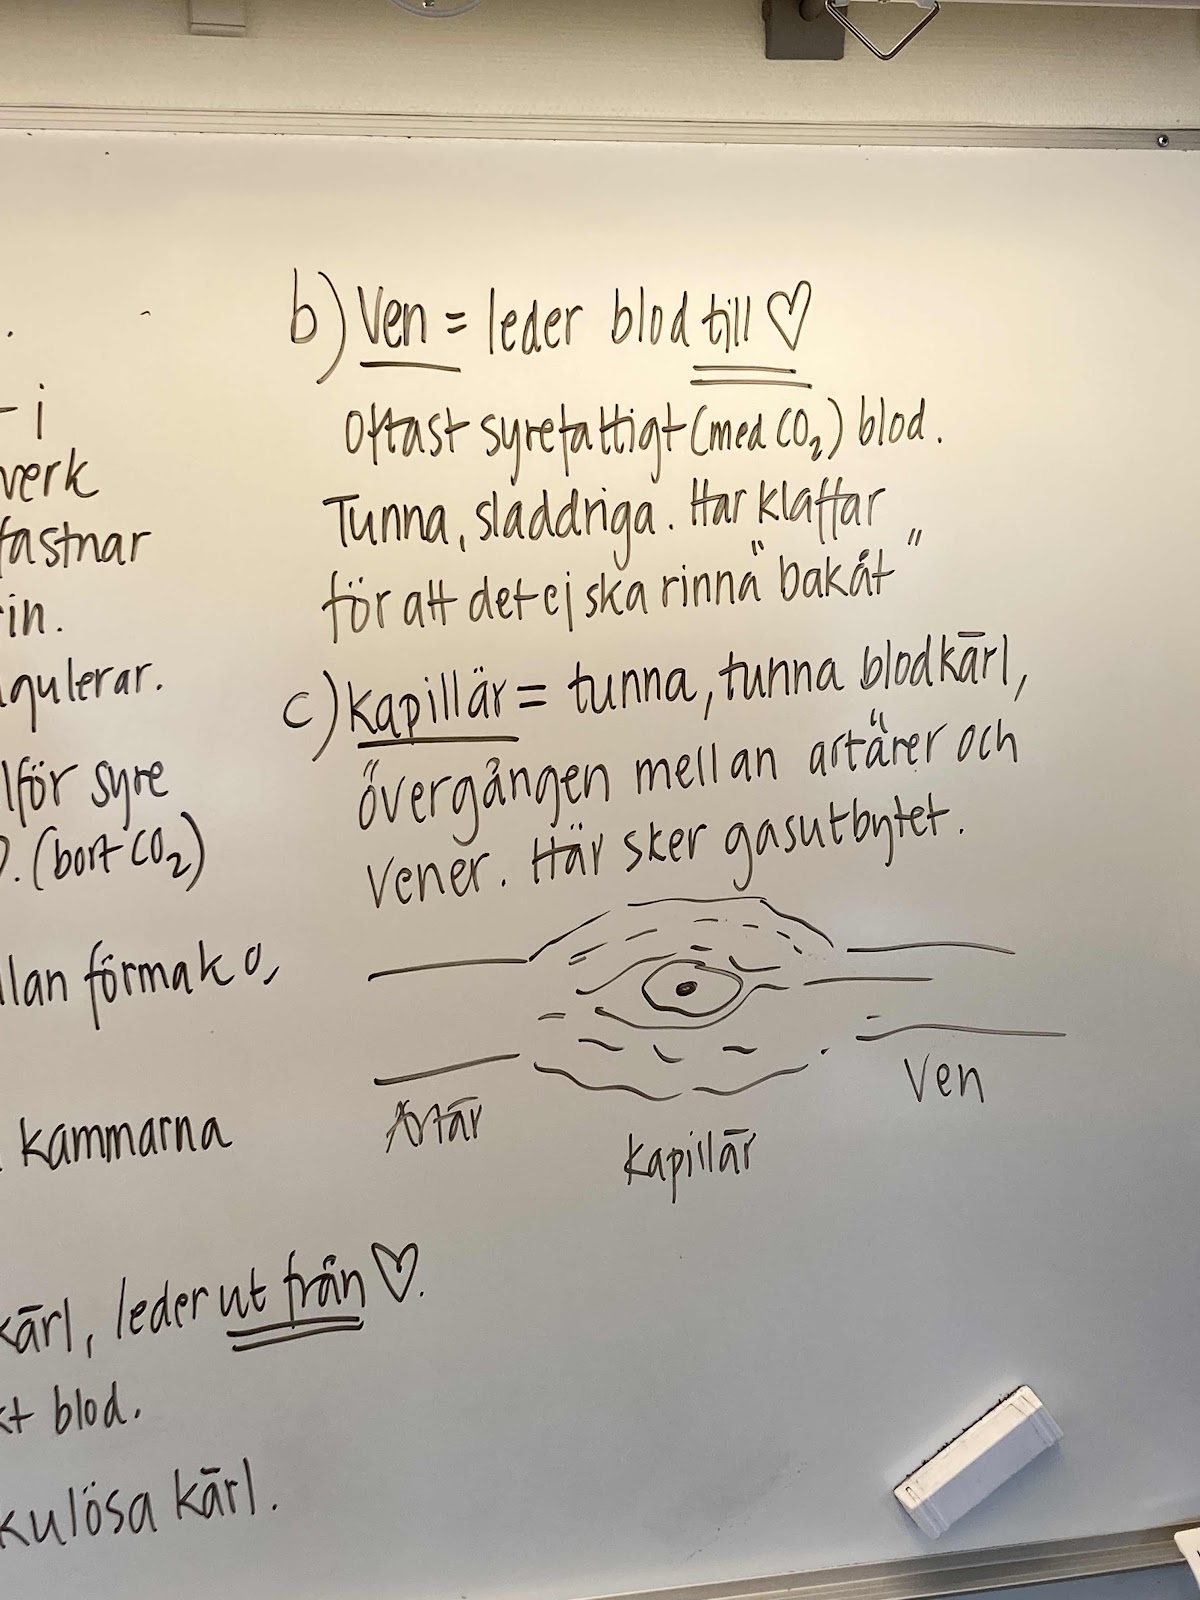 b) Ven = leder blod till ♡
Oftast syrefattigt (med CO₂) blod.
Tunna, sladdriga. Har klaffar
för att det ej ska rinna "bakåt"
c) kapillär = tunna, tunna blodkärl,
övergången mellan artärer och
vener. Här sker gasutbytet.
Artär
kapillär
Ven
- i
verk
fastnar
in.
gulerar.
för syre
. (bort CO₂)
llan förmak o,
kammarna
kärl, leder ut från ♡.
kt blod.
kulösa kärl.